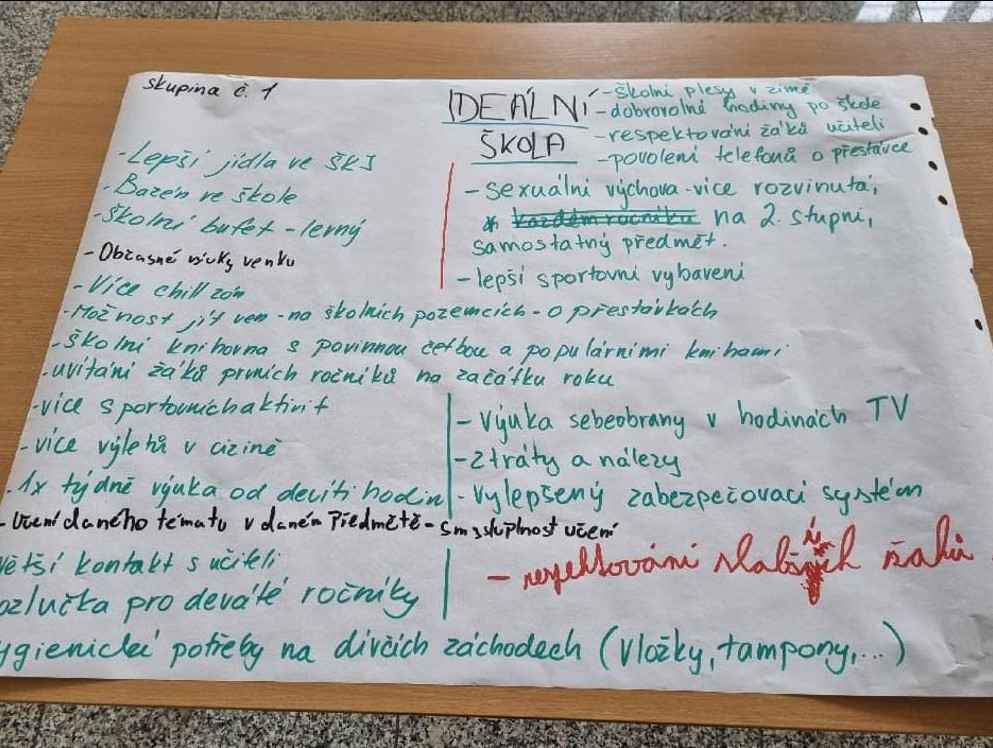 skupina č. 1
IDEÁLNÍ
ŠKOLA
-školní plesy v zimě
-dobrovolné hodiny po škole
-respektování žáků učiteli
-povolení telefonů o přestávce
-Lepší jídla ve ŠKJ
-Bazén ve škole
-školní bufet - levný
-Občasné výuky venku
-Více chill zón
-Možnost jít ven -na školních pozemcích - o přestávkách
-školní knihovna s povinnou četbou a populárními knihami
-uvítání žáků prvních ročníků na začátku roku
- sexuální výchova-více rozvinutá,
* každém ročníku na 2. stupni,
samostatný předmět.
-lepší sportovní vybavení
-více sportovních aktivit
-více výletů v cizině
-1x týdně výuka od devíti hodin
-Učení daného tématu v daném předmětě - smysluplnost učení
větší kontakt s učiteli
ozlučka pro deváté ročníky
ygienické potřeby na dívčích záchodech (vložky, tampony,...)
-Výuka sebeobrany v hodinách TV
-Ztráty a nálezy
-Vylepšený zabezpečovací systém
- respektování slabších žáků